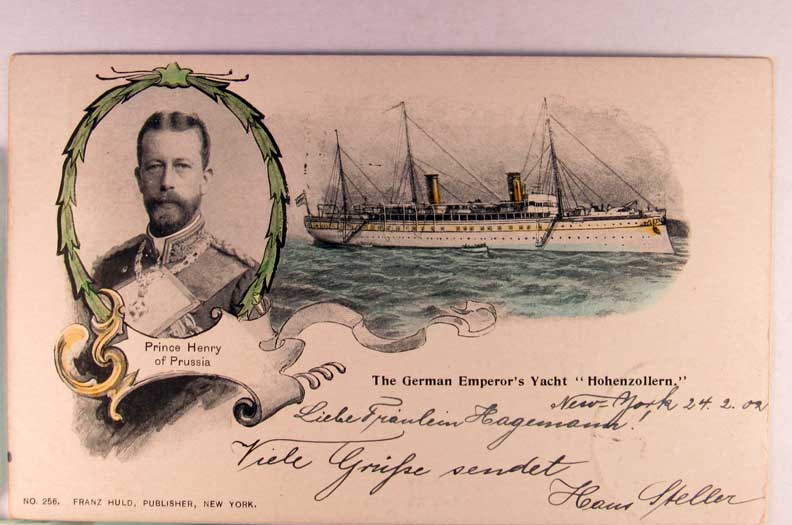 Prince Henry
of Prussia
The German Emperor's Yacht "Hohenzollern."
New-York 24. 2. 02
Liebe Fräulein Hagemann!
Viele Grüße sendet
Hans Steller
NO. 256. FRANZ HULD, PUBLISHER, NEW YORK.